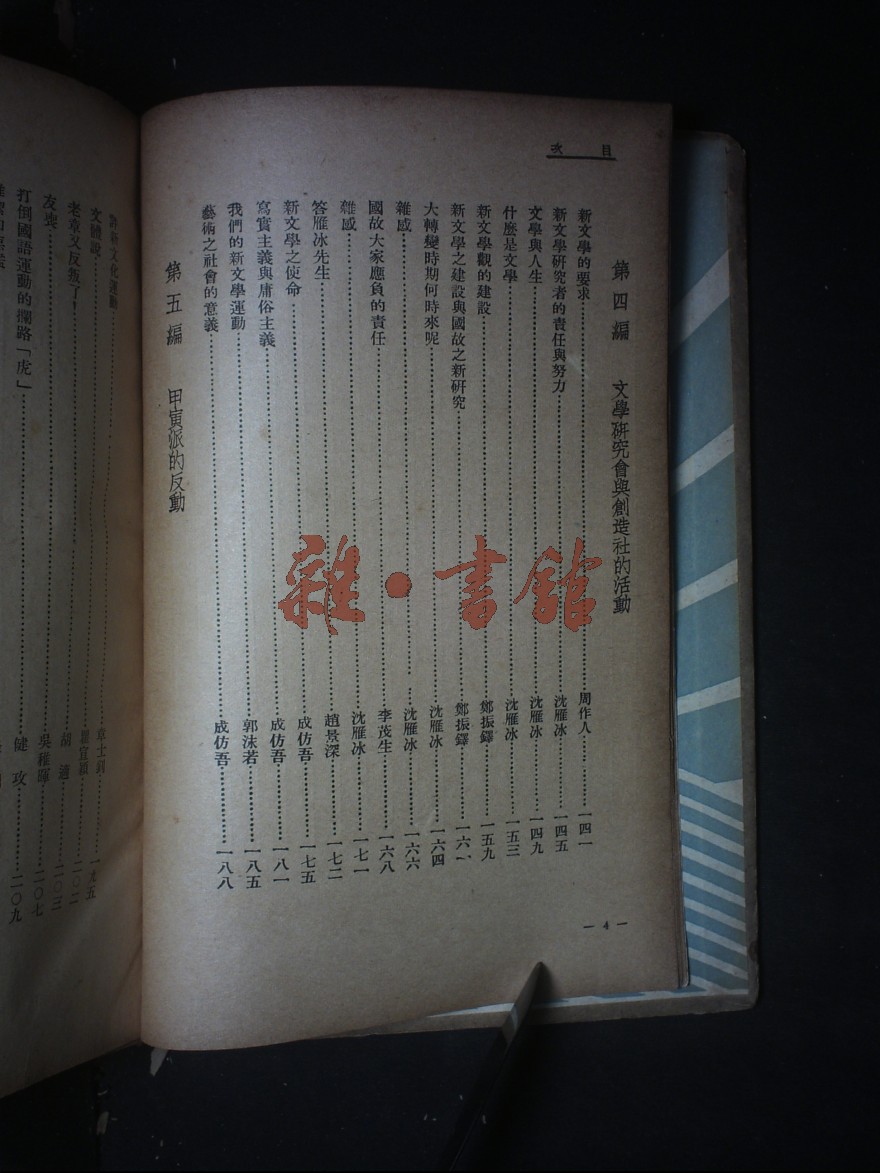 目次
第四編 文學研究會與創造社的活動
新文學的要求……周作人……一四一
新文學研究者的責任與努力……沈雁冰……一四五
文學與人生……沈雁冰……一四九
什麼是文學……沈雁冰……一五三
新文學觀的建設……鄭振鐸……一五九
新文學之建設與國故之新研究……鄭振鐸……一六一
大轉變時期何時來呢……沈雁冰……一六四
雜感……沈雁冰……一六六
國故大家應負的責任……李茂生……一六八
雜感……沈雁冰……一七一
答雁冰先生……趙景深……一七二
新文學之使命……成仿吾……一七五
寫實主義與庸俗主義……成仿吾……一八一
我們的新文學運動……郭沫若……一八五
藝術之社會的意義……成仿吾……一八八
第五編 甲寅派的反動
— 4 —
評新文化運動……章士釗……一九五
文體說……瞿宣穎……二〇一
老章又反叛了！……胡適……二〇三
友喪……吳稚暉……二〇七
打倒國語運動的攔路「虎」……健攻……二〇九
雜·書館